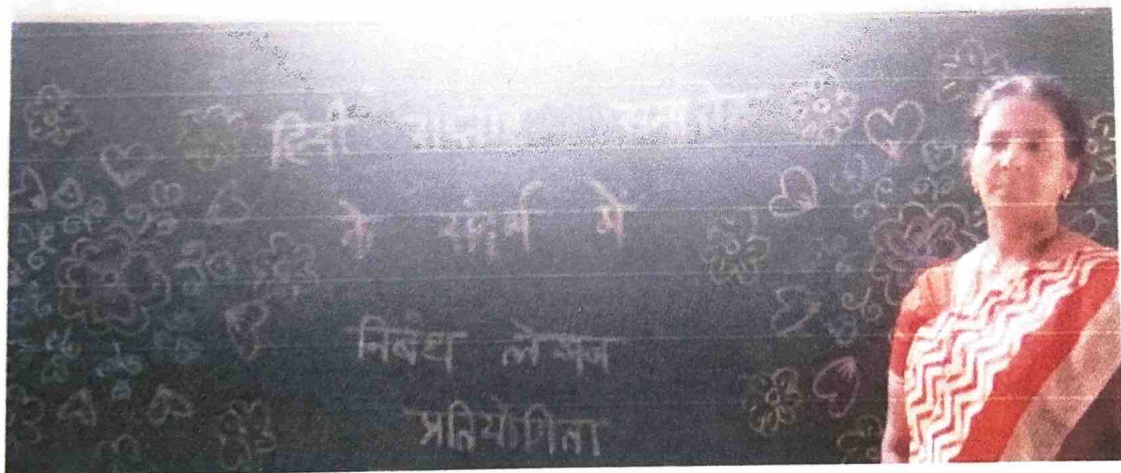 हिन्दी सप्ताह समारोह
के संदर्भ में
निबंध लेखन
प्रतियोगिता